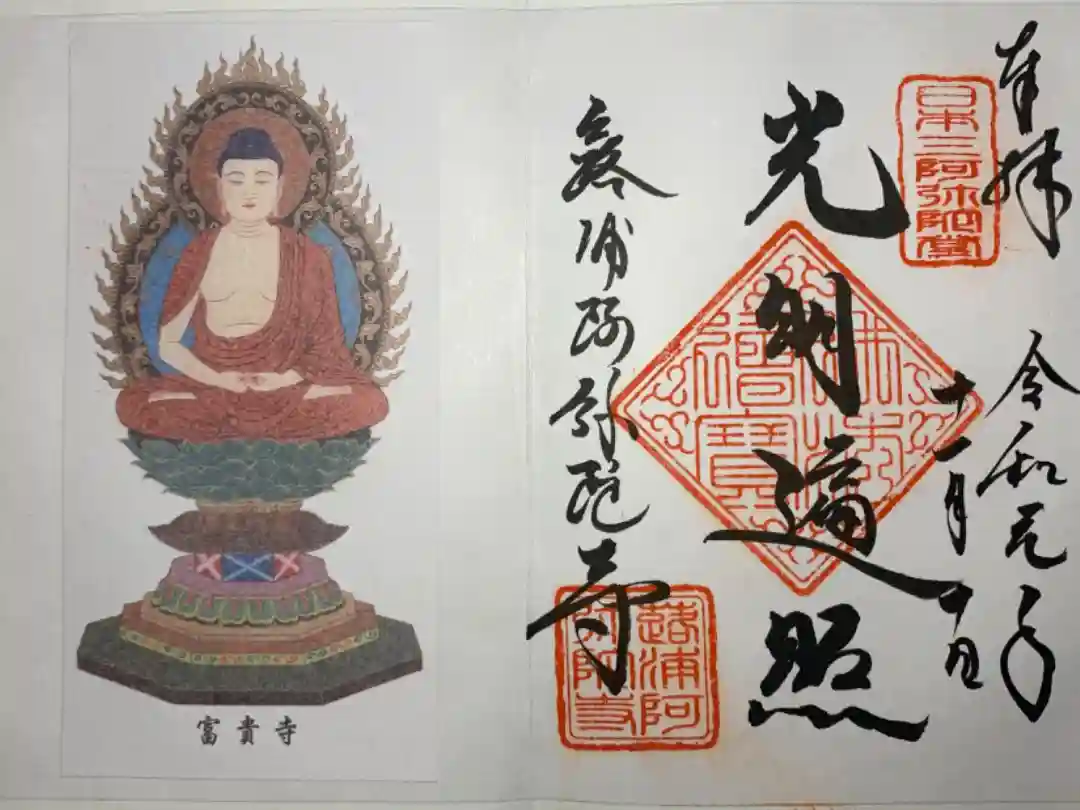 奉拝
令和元年
十一月十日
日本三阿弥陀堂
光明遍照
佛法僧寶
蕗浦阿弥陀寺
蕗浦阿
弥陀寺
富貴寺